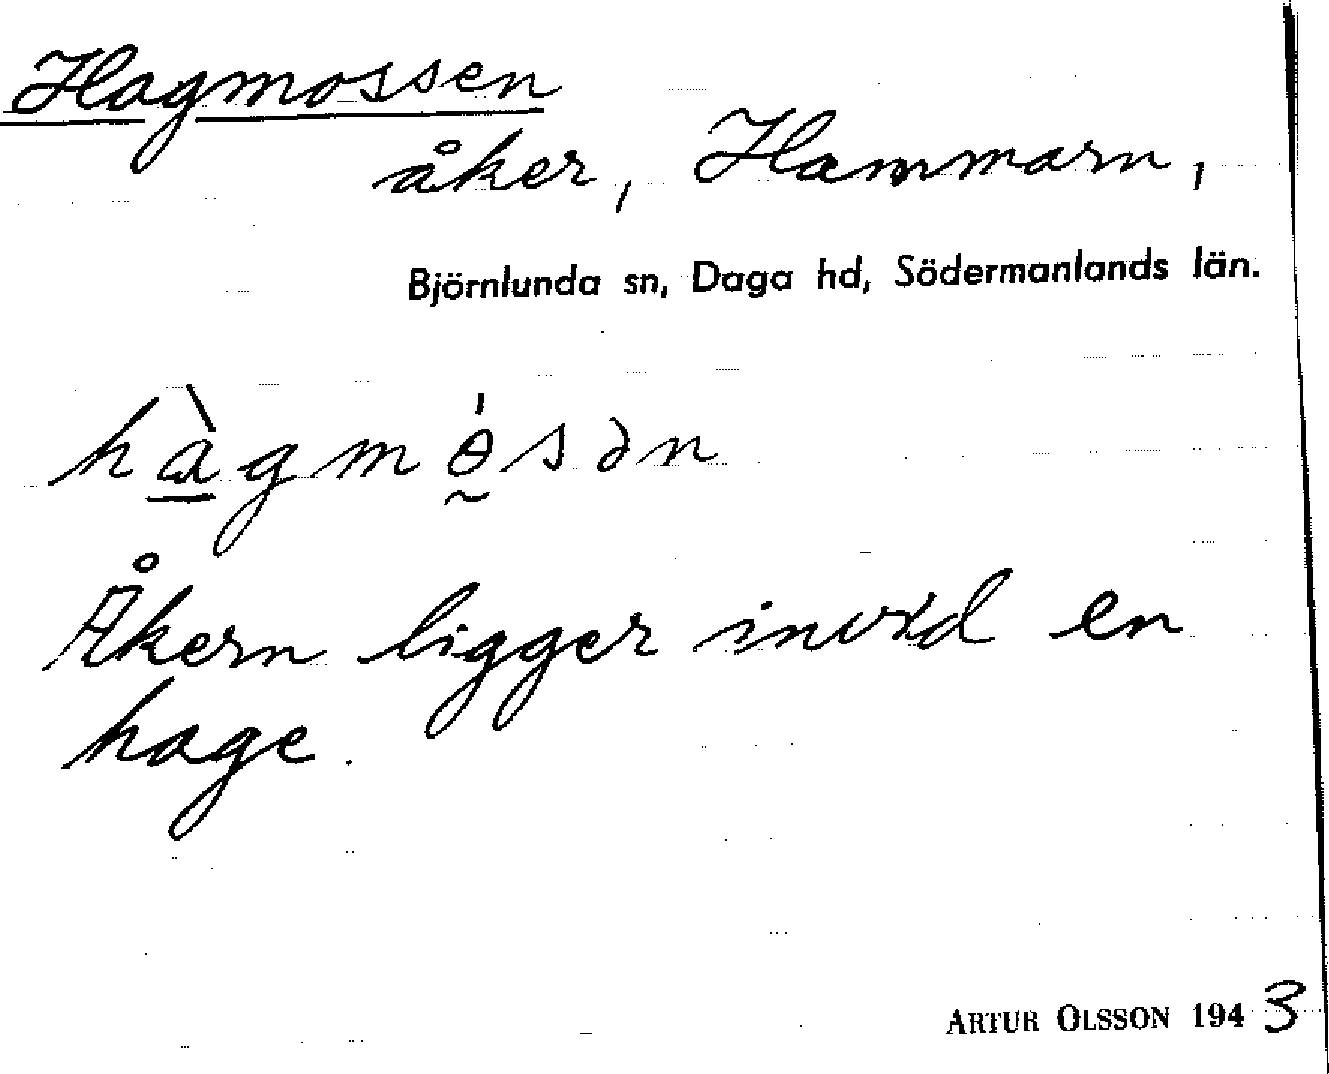 Hagmossen
åker, Hammarn,
Björnlunda sn, Daga hd, Södermanlands län.
hàgmɵ́sən
Åkern ligger invid en
hage.
ARTUR OLSSON 1943